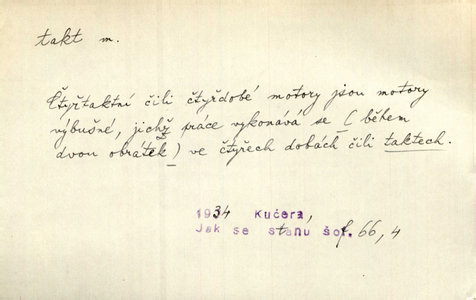 takt m.
Čtyřtaktní čili čtyřdobé motory jsou motory
výbušné, jichž práce vykonává se (během
dvou obrátek) ve čtyřech dobách čili taktech.
1934 Kučera,
Jak se stanu šof. 66, 4